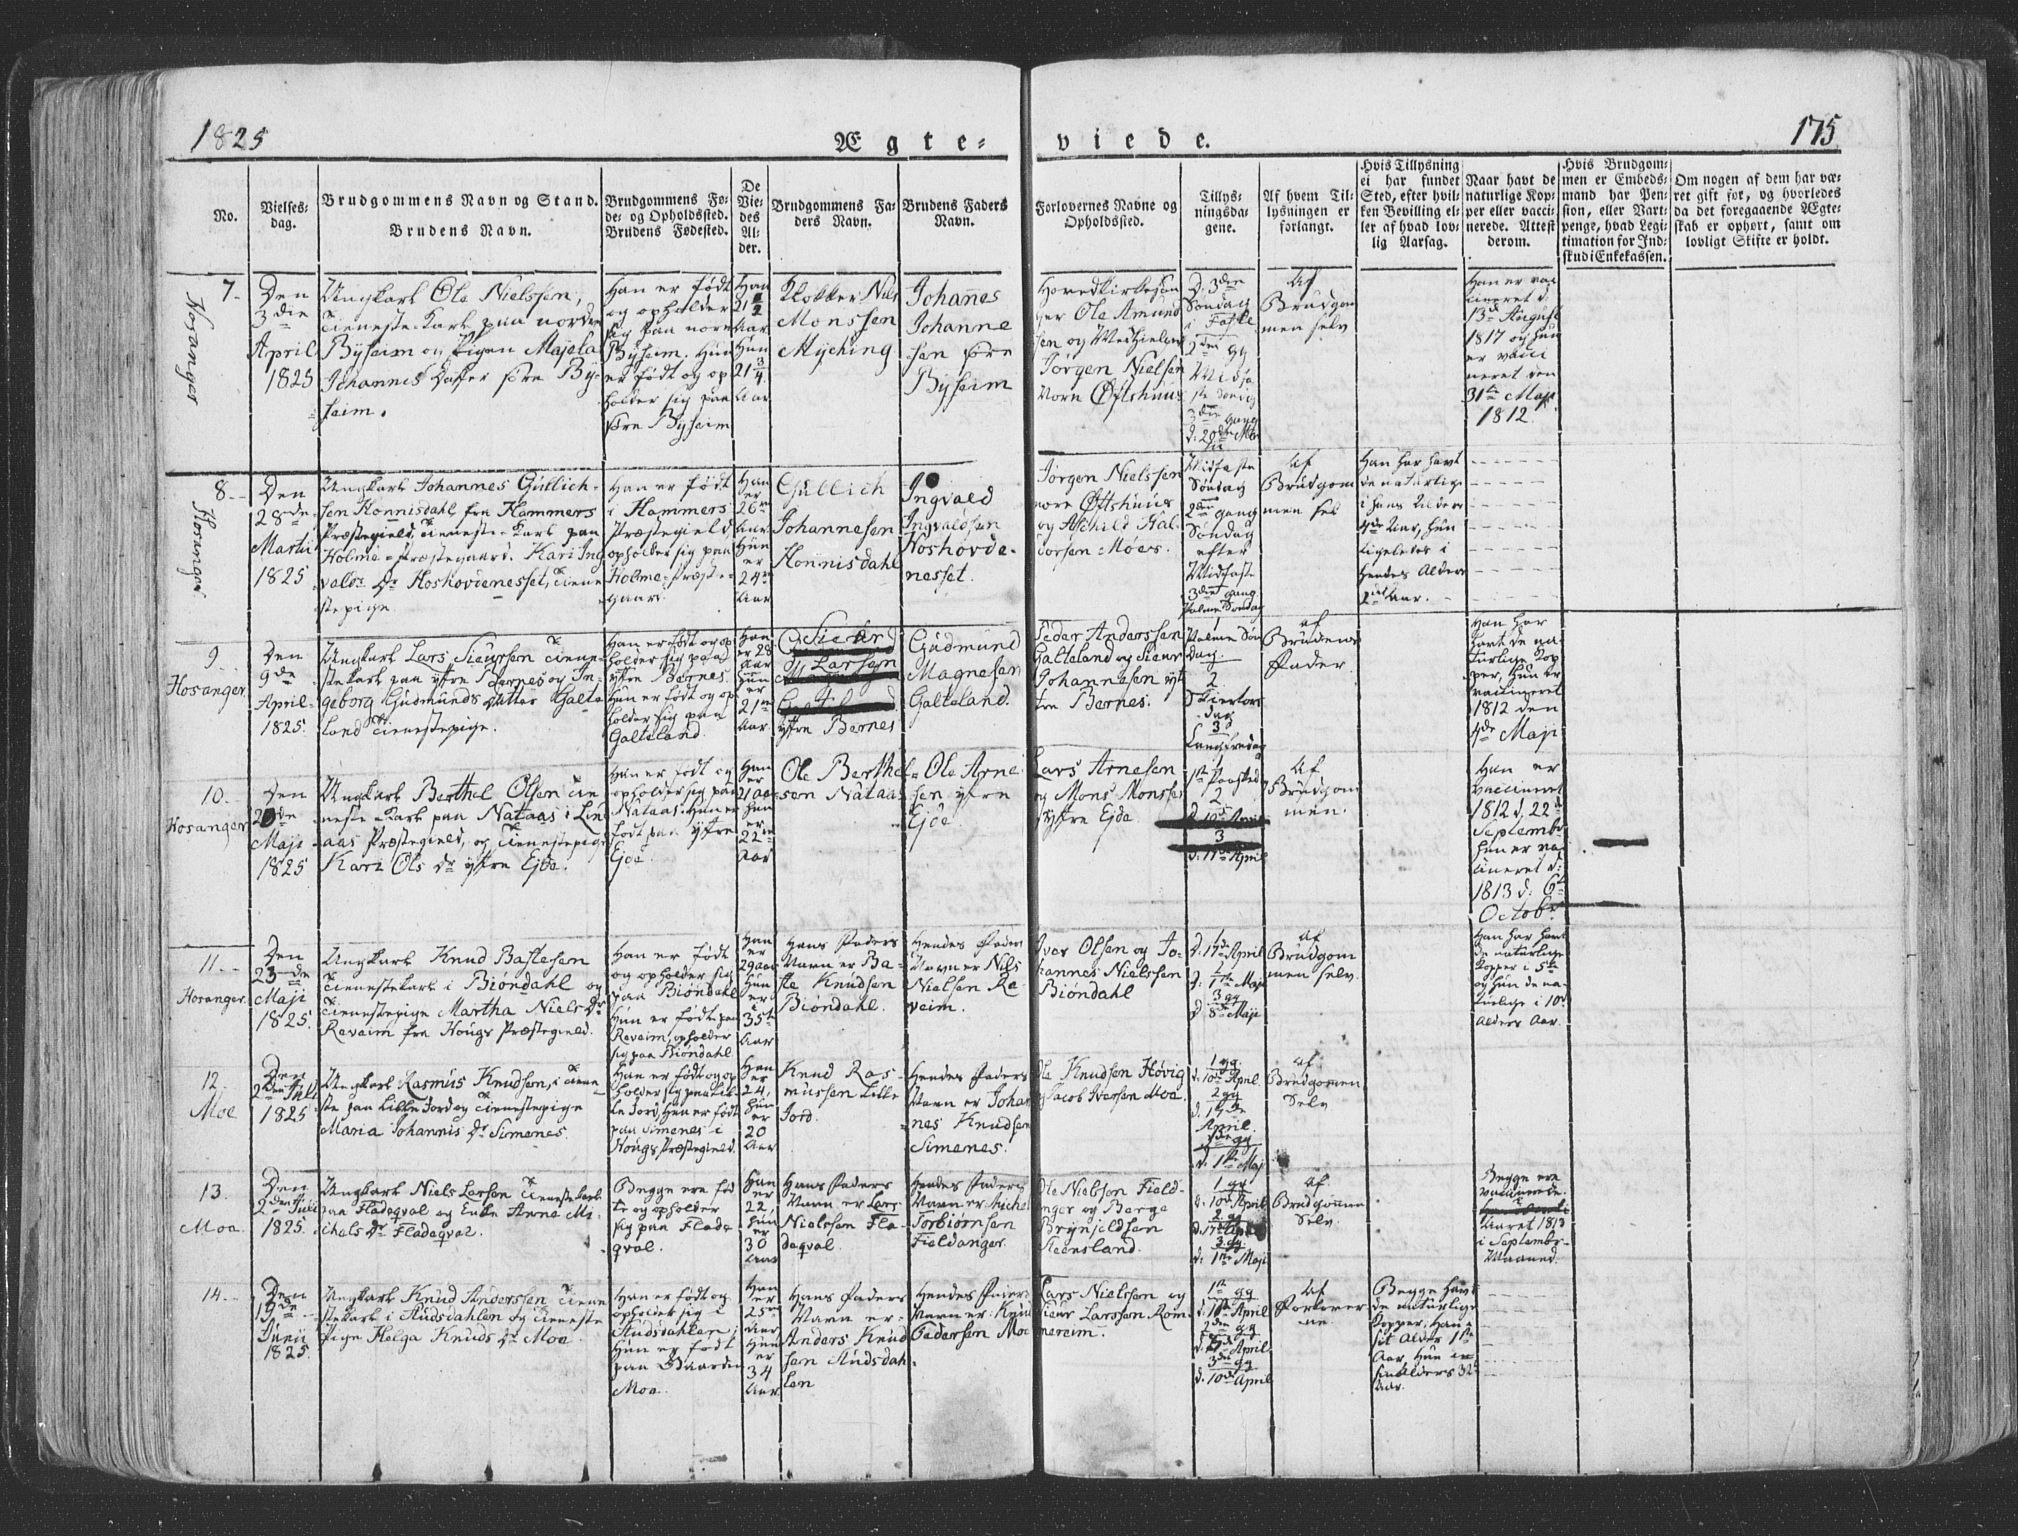 1825
Ægte-
viede.
175
No.
Vielses-
dag.
Brudgommens Navn og Stand.
Brudens Navn.
Brudgommens Fø-
de- og Opholdssted.
Brudens Fødested.
De
Vie-
des
Al-
der.
Brudgommens Fa-
ders Navn.
Brudens Faders
Navn.
Forlovernes Navne og
Opholdssted.
Tillys-
ningsda-
gene.
Af hvem Til-
lysningen er
forlangt.
Hvis Tillysning
ei har fundet
Sted, efter hvil-
ken Bevilling el-
ler af hvad lov-
lig Aarsag.
Naar havt de
naturlige Kop-
per eller vacci-
nerede. Attest
derom.
Hvis Brudgom-
men er Embeds-
mand har Pen-
sion, eller Vart-
penge, hvad Legi-
timation for Ind-
skud i Enkekassen.
Om nogen af dem har væ-
ret gift før, og hvorledes
da det foregaaende Ægte-
skab er ophørt, samt om
lovligt Skifte er holdt.
7.
Hosanger
Den
3die
April
1825
Ungkarl Ole Nielssen,
tieneste Karl paa nordre
Byseim og Pigen Majela
Johannes Datter søre By-
seim.
Han er født
og opholder
sig paa nore
Byseim. Hun
er født og op
holder sig paa
søre Byseim
Han
21
Aar
Hun
21 3/4
Aar
Klokker Niels
Monssen
Myching
Johanes
Johanne
sen søre
Byseim
Hovedkirkesan
ger Ole Amund
sen og Medhielper
Jørgen Nielsen
Norn Øftshuus
D. 3den
Søndag
i Faste
2den gg
Midfa
ste Søndg
3die gang
d: 20de Mar
Af
Brudgom
men selv
Han er vac
cineret d:
13de August
1817 og hun
er vacci
neret den
31te Maji
1812
8.
Hosanger
Den
28de
Martii
1825
Ungkarl Johannes Gullich-
sen Konnisdahl fra Hammers
Præstegield, tieneste-Karl paa
Holme-Præstegaard. Kari Ing
valds Dr Hoshovdenesset, tiene
stepige.
Han er født
i Hammers
Præstegield
opholder sig paa
Holme-Præste-
gaard
Han
er
26
Aar
Hun
er
24
Aar
Gullich
Johannesen
Konnisdahl
Ingvald
Ingvaldsen
Hoshovde-
nesset.
Jørgen Nielssen
nore Øftshuus
og Aschild Hal-
dorsen Møes.
Midfaste
Søndag
2den gang
Søndag
efter
Midfaste
3die gang
Palme Søndag
Af
Brudgom
men sel
Han har havt
de naturlige
i hans Alders
4de Aar, hun
ligeledes i
hendes Alders
2det Aar.
9.
Hosanger
Den
9de
April
1825.
Ungkarl Lars Siursen tiene-
stekarl paa yfre Bernes og In-
geborg Gudmunds Datter Galte
land tienestepige.
Han er født og op
holder sig paa
yfre Bernes
Hun er født og op
holder sig paa
Galteland.
Han
er 28
Aar
hun
er
21
Aar
Siurd
Larsen
yfre Bernes
Gudmund
Magnesen
Galteland.
Peder Anderssen
Galteland og Siur
Johannesen yt
tre Bernes.
1
Palme Søn
dag.
2
Skiertors
dag
3
Langfredag
af
Brudens
Fader
Han har
havt de na-
turlige Kop
per, hun er
vaccineret
1812 den
4de Maji
10.
Hosanger
Den
20de
Maji
1825
Ungkarl Berthel Olsen tie
neste-Karl paa Nataas i Lin
aas Præstegield, og tienestepige
Kari Ols Dr yfre Ejde.
Han er født og
opholder sig paa
Nataas. Hun er
født paa yfre
Ejde.
Han
er
21 aar
hun
er
22
Aar
Ole Berthel-
sen Nataas
Ole Arne
sen yfre
Ejde
Lars Arnesen
og Mons Monssen
yfre Ejde
1
1ste Paasked
2
d. 10de April
3
d: 17de April
Af
Brudgom
men.
Han er
vaccineret
1812 d. 22de
Septembr
hun er va
cineret d:
1813 d: 6te
Octobr
11.
Hosanger.
Den
23de
Maji
1825.
Ungkarl Knud Bastesen
tienestekarl i Biøndahl og
tienestepige Martha Niels Dr
Reveim fra Hougs Præstegield.
Han er født
og opholder sig
paa Biøndahl
Hun er født paa
Reveim, opholder
sig paa Biøndahl
Han
er
29 aar
Hun
er
35
Aar
Hans Faders
Navn er Ba-
ste Knudsen
Biøndahl.
Hendes Fader
Navn er Nils
Nielsen Re-
veim.
Iver Olsen og Jo-
hannes Nielssen
Biøndahl
1
d: 17de April
2
d: 1ste Maji
3 gg
d 8de Maji
Af
Brudgom
men selv.
Han har havt
de naturlige
Kopper i 5te
og hun de na-
turlige i 10de
Alders Aar.
12.
Moe
Den
2den Juli
1825
Ungkarl Rasmus Knudsen, i tiene
ste paa Lille Jord og tienestepige
Maria Johannis Dr Simenes.
Han er født og op
holder sig paa Lil-
le Jord, Hun er født
paa Simenes i
Hougs Præstegield.
Han
er
24,
hun
er
20
Aar
Knud Ras-
mussen Lille
Jord.
Hendes Faders
Navn er Johan
nes Knudsen
Simenes.
Ole Knudsen Høvig
og Jacob Iversen Moe.
1 gg
d: 10de April
2 gg
d. 17de
April.
3de gg
d: 1ste Maji
af
Brudgomen
Selv
13.
Moe.
Den
2den Juli
1825.
Ungkarl Niels Larsen tienestekarl
paa Fladeqval og Enke Anne Mi-
chels Dr Fladeqval.
Begge ere fød
te og opholder
sig paa Flade
qval.
Han
er
22,
hun
er
30
Aar
Hans Faders
Navn er Lars
Nielssen Fla
deqval
Hendes Faders
Navn er Michel
Torbiørnsen
Fieldanger.
Ole Nielsen Field-
anger og Børge
Brynjeldsen
Steensland.
1 gg
d: 10de April
2 gg
d. 17de April
3 gg.
d: 1ste Maji
af
Brudgomen
Selv.
Begge ere
vaccinerede
Aaret 1813
i Septembr
Maaned.
14.
Den
19de
Junii
1825.
Ungkarl Knud Anderssen tiene
stekarl i Audsdahlen og tieneste
Pige Helga Knuds Dr Moe.
Han er født og
opholder sig i
Audsdahlen,
Hun er født
paa Gaarden
Moe.
Han
er
25
Aar
Hun
er
34
Aar
Hans Faders
Navn er
Anders Knud
sen Audsdah-
len
Hendes Faders
Navn er: Knud
Pedersen Moe
Lars Nielssen og
Siur Larssen Rom
mereim.
1ste gg
d: 10de April
2den gg
d. 17de April.
3die gg
d: 10de April
Af
Forlover
ne
Begge havt
de naturlige
Kopper, Han i
sit Alders 1ste
Aar Hun i
sin Alders 3de
Aar.